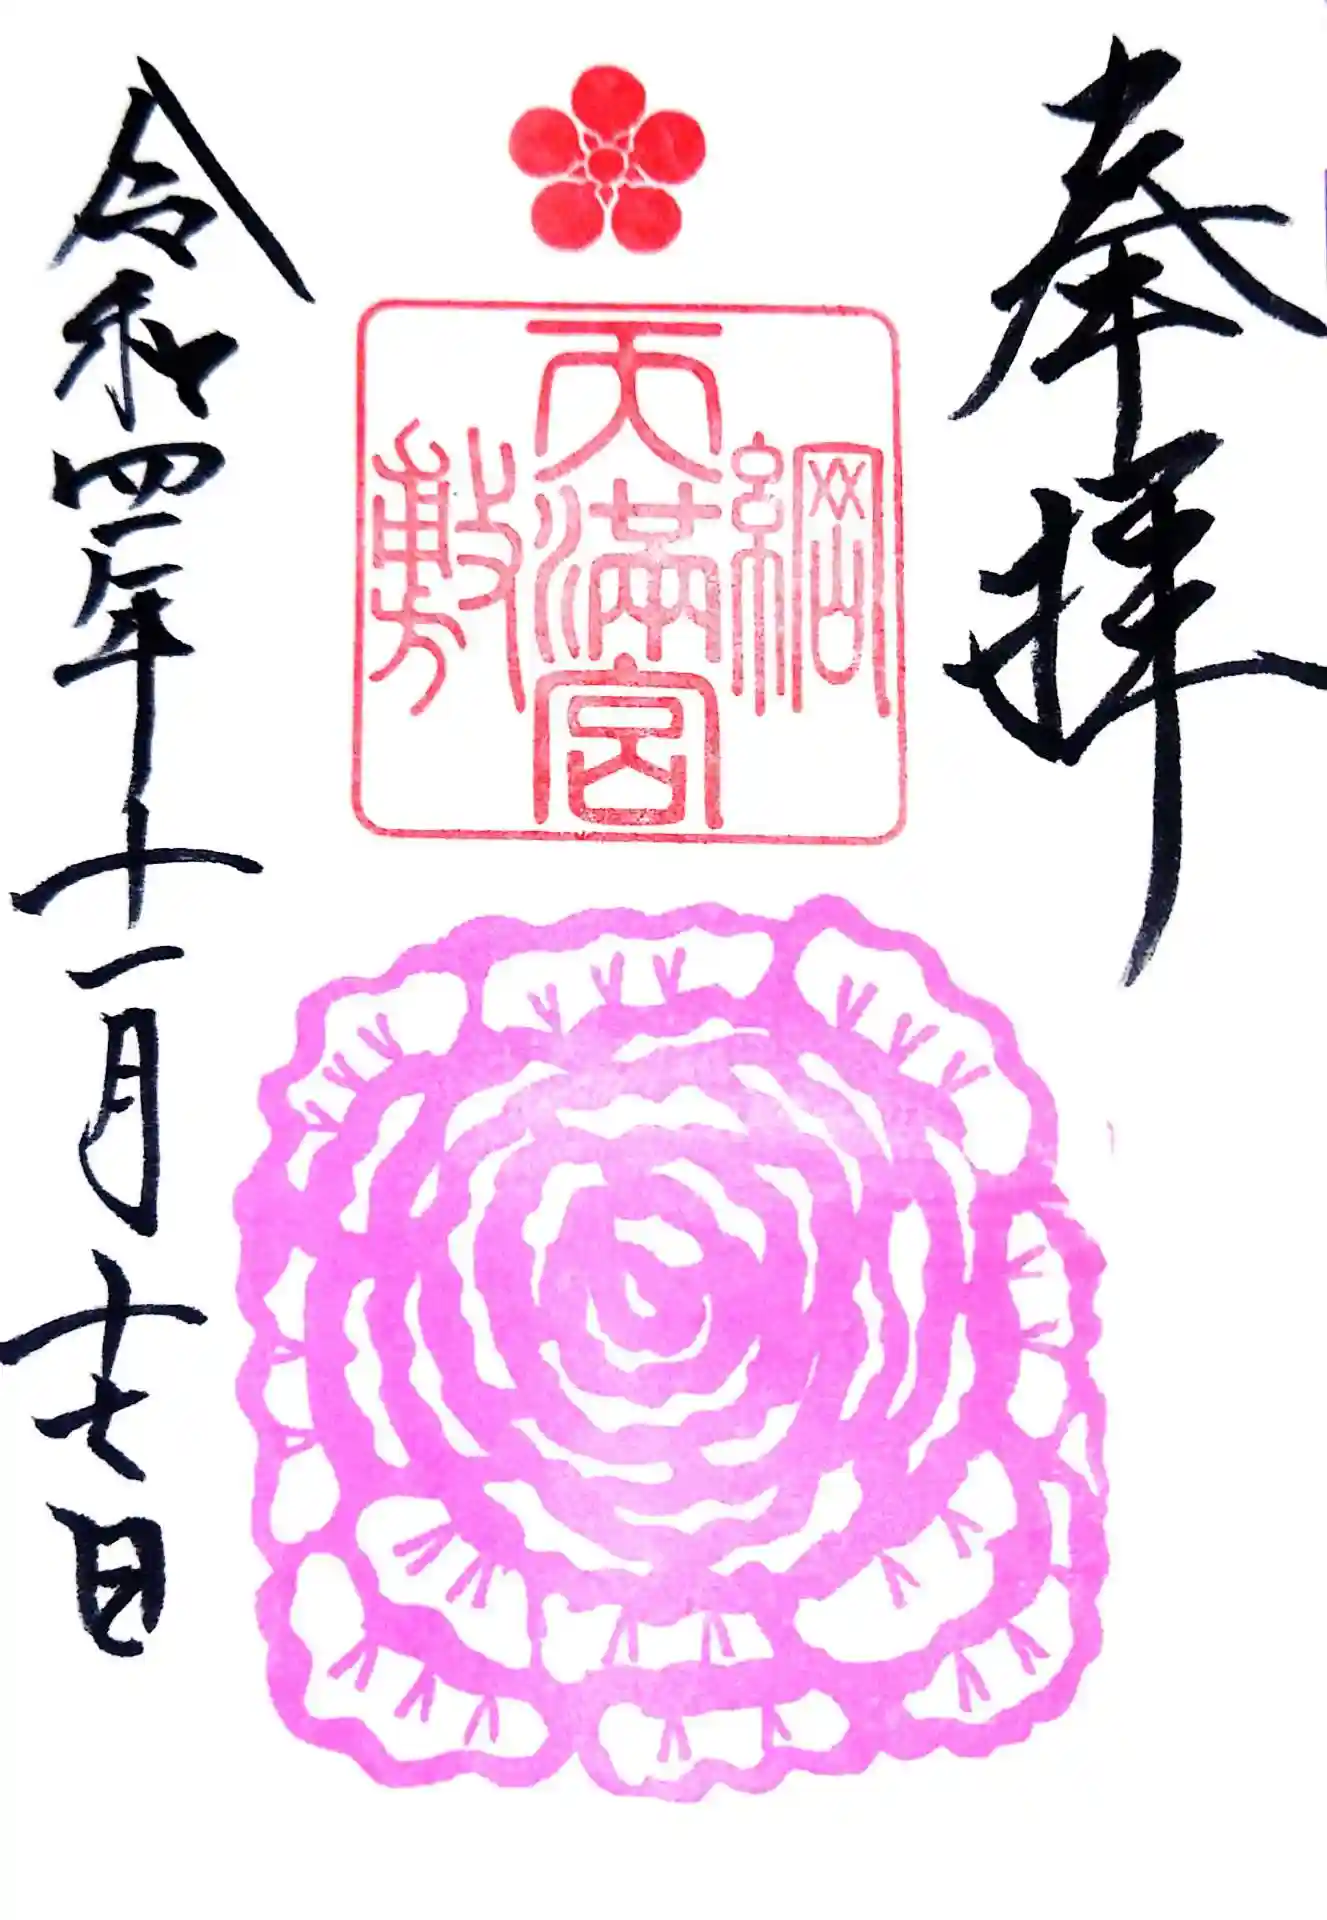 奉拝
綱敷
天満宮
令和四年十一月十七日